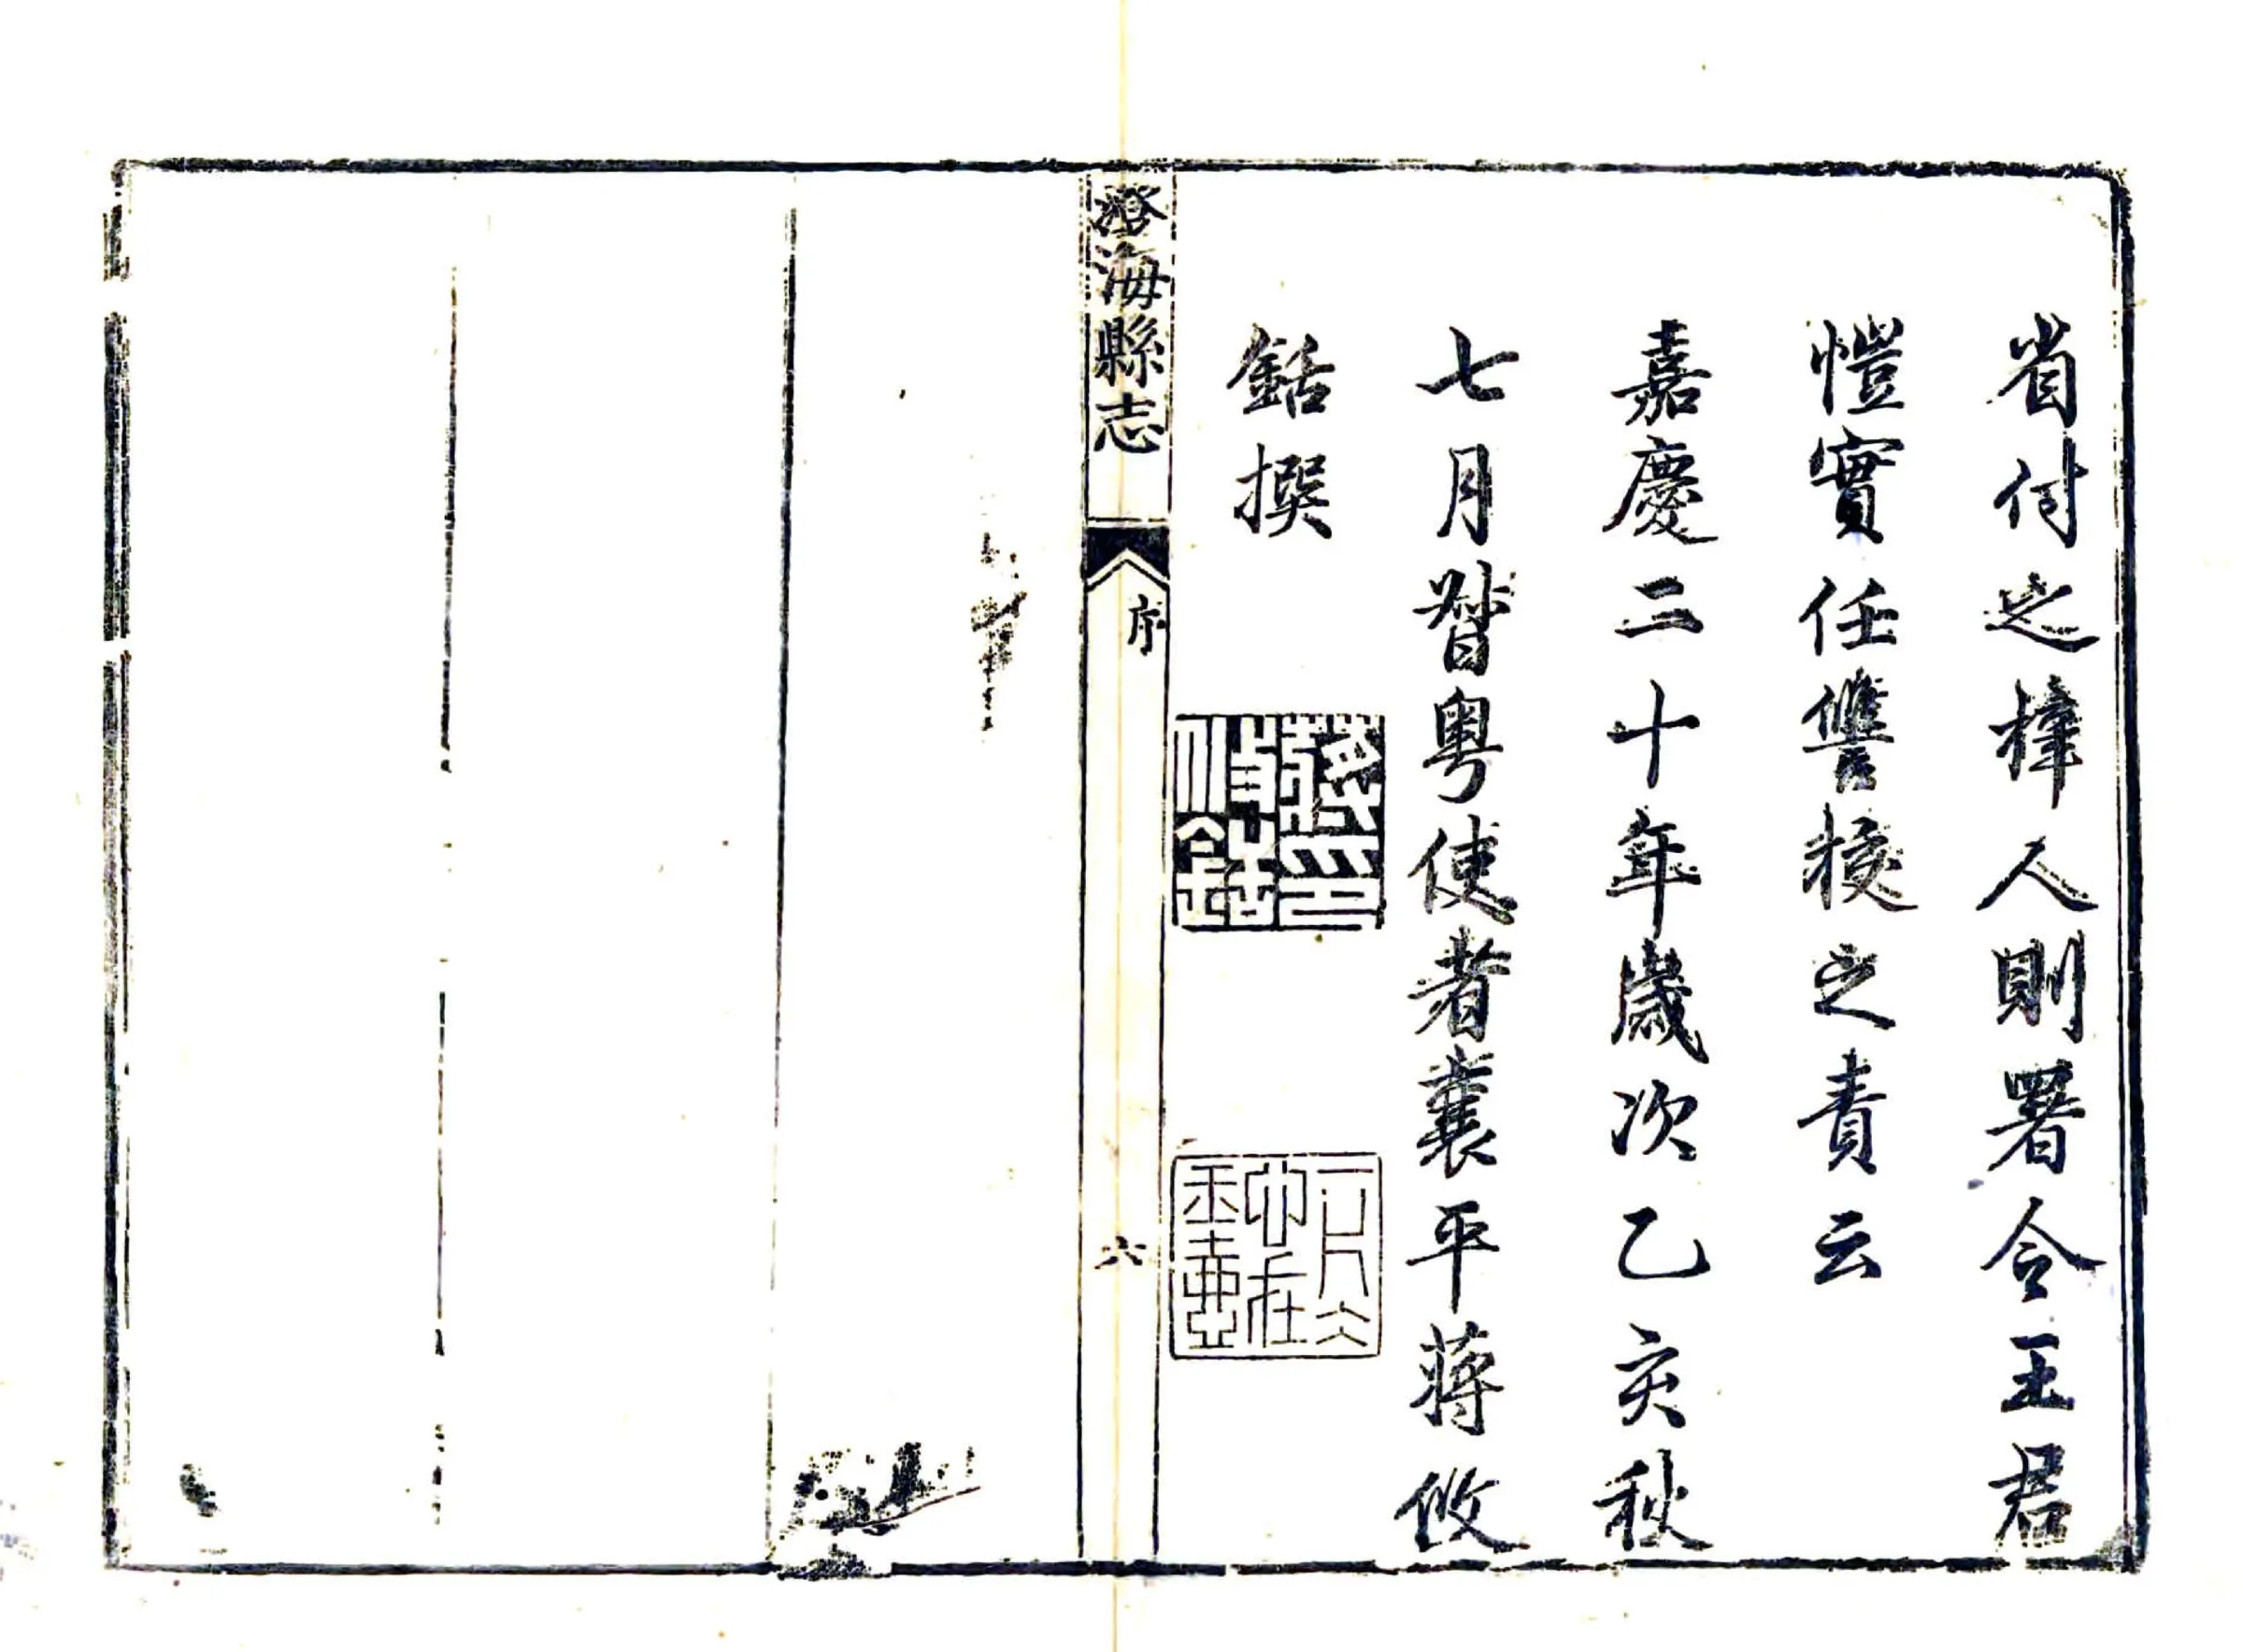 省付之梓人則署令王君
愷實任讐挍之責云
嘉慶二十年歲次乙亥秋
七月督粵使者襄平蔣攸
銛撰
蔣攸銛印
一片仌心在玉壺
澄海縣志
序
六